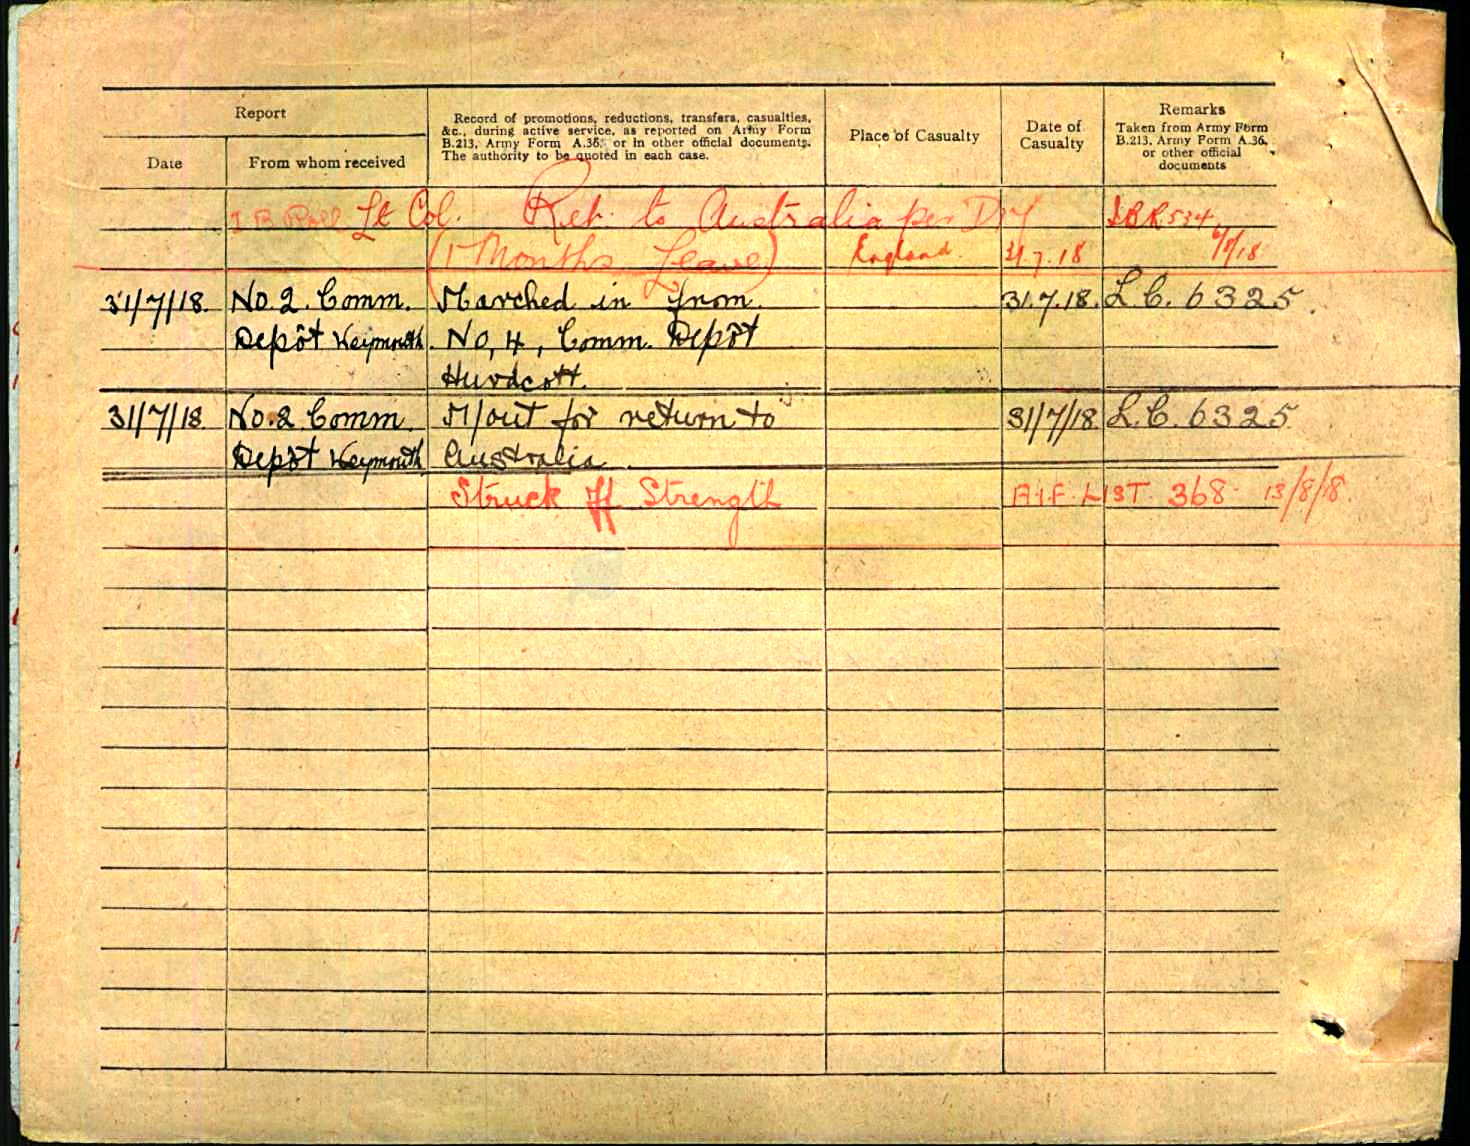 Report
Record of promotions, reductions, transfers, casualties,
&c., during active service, as reported on Army Form
B.213, Army Form A.36, or in other official documents.
The authority to be quoted in each case.
Place of Casualty
Date of
Casualty
Remarks
Taken from Army Form
B.213, Army Form A.36,
or other official
documents
Date
From whom received
Lt Col. Ret. to Australia per D27 I.B.R. 534
(1 Months Leave) England 31.7.18 /18
31/7/18. No. 2. Comm. Marched in from 31.7.18. L.C. 6325
Depôt Weymouth. No, 4, Comm. Depôt
Hurdcott.
31/7/18 No. 2 Comm. M/out for return to 31/7/18. L.C. 6325
Depôt Weymouth Australia
Struck off Strength A.I.F. LIST. 368 13/8/18.